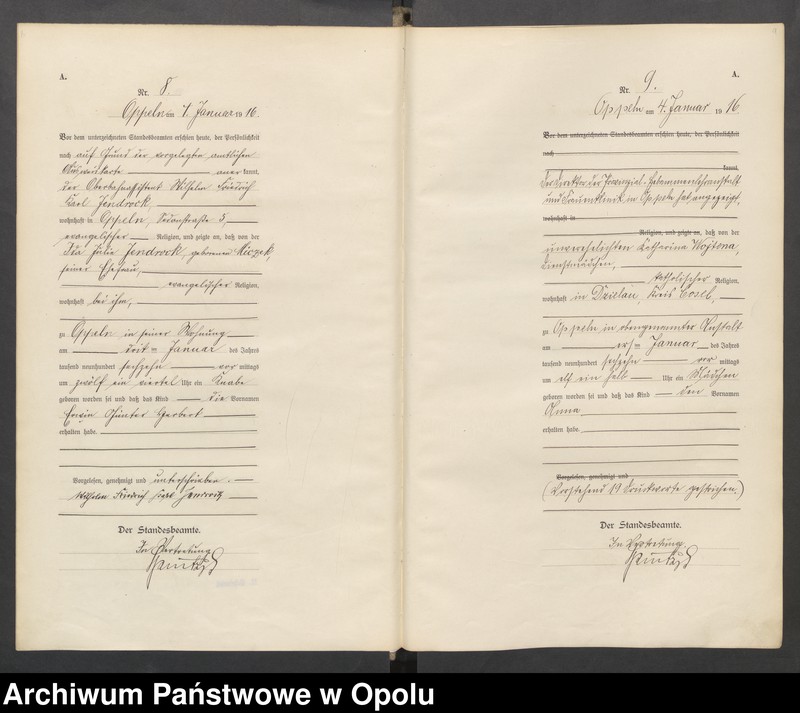 A.
Nr. 8.
Oppeln am 4. Januar 1916.
Vor dem unterzeichneten Standesbeamten erschien heute, der Persönlichkeit
nach auf Grund der vorgelegten amtlichen
Ausweiskarte anerkannt,
der Oberbahnassistent Wilhelm Friedrich
Karl Jendrock,
wohnhaft in Oppeln, Sedanstraße 5,
evangelischer Religion, und zeigte an, daß von der
Ida Julie Jendrock, geborenen Miczek,
seiner Ehefrau,
evangelischer Religion,
wohnhaft bei ihm,
zu Oppeln in seiner Wohnung
am drei ten Januar des Jahres
tausend neunhundert sechzehn vor mittags
um zwölf ein viertel Uhr ein Knabe
geboren worden sei und daß das Kind die Vornamen
Erwin Günter Herbert
erhalten habe.
Vorgelesen, genehmigt und unterschrieben.
Wilhelm Friedrich Karl Jendrock
Der Standesbeamte.
In Vertretung
A.
Nr. 9.
Oppeln am 4. Januar 1916.
Vor dem unterzeichneten Standesbeamten erschien heute, der Persönlichkeit
nach
kannt,
Der Direktor der Provinzial-Hebammenlehranstalt
und Frauenklinik in Oppeln hat angezeigt,
wohnhaft in
Religion, und zeigte an, daß von der
unverehelichten Katharina Wojtona,
Dienstmädchen,
katholischer Religion,
wohnhaft in Dzielau, Kreis Cosel,
zu Oppeln in obengenannter Anstalt
am ers ten Januar des Jahres
tausend neunhundert sechzehn vor mittags
um elf ein halb Uhr ein Mädchen
geboren worden sei und daß das Kind den Vornamen
Anna
erhalten habe.
Vorgelesen, genehmigt und
(Vorstehend 19 Druckworte gestrichen.)
Der Standesbeamte.
In Vertretung
Archiwum Państwowe w Opolu